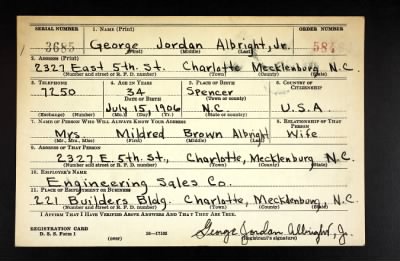 SERIAL NUMBER 1. NAME (Print) ORDER NUMBER
3685 George Jordan Albright, Jr. 584
(First) (Middle) (Last)
2. ADDRESS (Print)
2327 East 5th. St. Charlotte Mecklenburg N.C.
(Number and street or R. F. D. number) (Town) (County) (State)
3. TELEPHONE 4. AGE IN YEARS 5. PLACE OF BIRTH 6. COUNTRY OF CITIZENSHIP
7250 34 Spencer
DATE OF BIRTH (Town or county)
July 15, 1906 N.C. U.S.A
(Exchange) (Number) (Mo.) (Day) (Yr.) (State or country)
7. NAME OF PERSON WHO WILL ALWAYS KNOW YOUR ADDRESS 8. RELATIONSHIP OF THAT PERSON
Mrs Mildred Brown Albright Wife
(Mr., Mrs., Miss) (First) (Middle) (Last)
9. ADDRESS OF THAT PERSON
2327 E. 5th. St., Charlotte, Mecklenburg, N.C.
(Number and street or R. F. D. number) (Town) (County) (State)
10. EMPLOYER'S NAME
Engineering Sales Co.
11. PLACE OF EMPLOYMENT OR BUSINESS
221 Builders Bldg. Charlotte, Mecklenburg, N.C.
(Number and street or R. F. D. number) (Town) (County) (State)
I AFFIRM THAT I HAVE VERIFIED ABOVE ANSWERS AND THAT THEY ARE TRUE.
REGISTRATION CARD
D. S. S. Form 1 (over) 16-17105 George Jordan Albright, Jr.
(Registrant's signature)